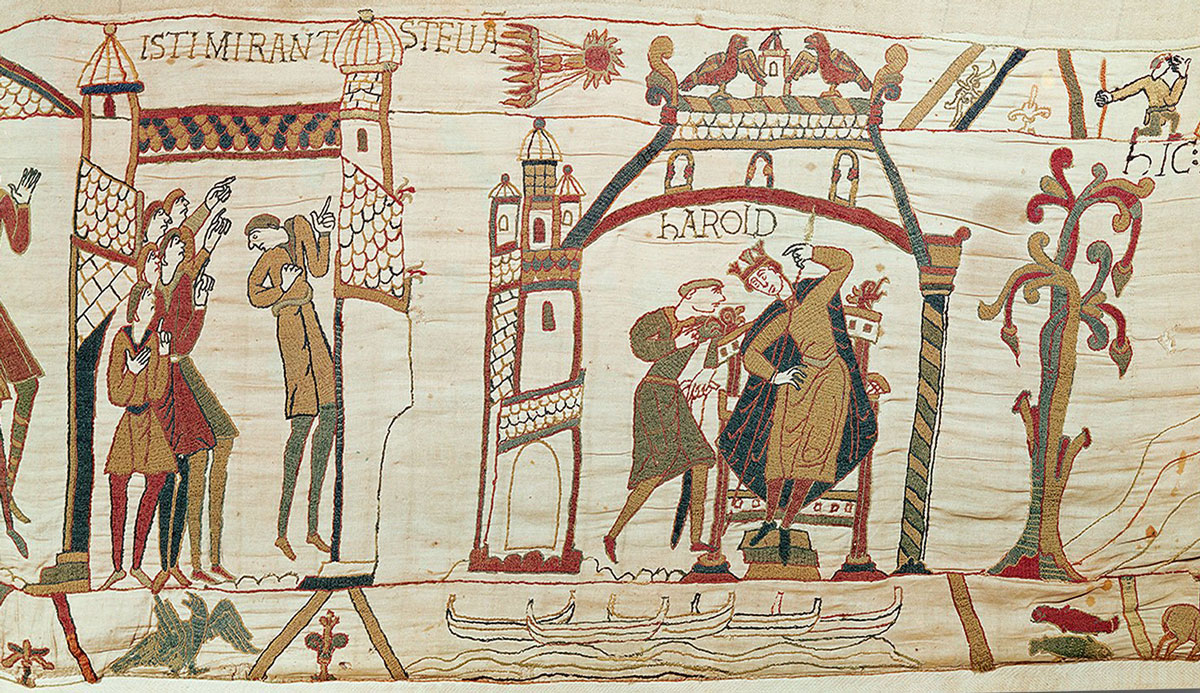 ISTI MIRANT STELLÃ
HAROLD
HIC: